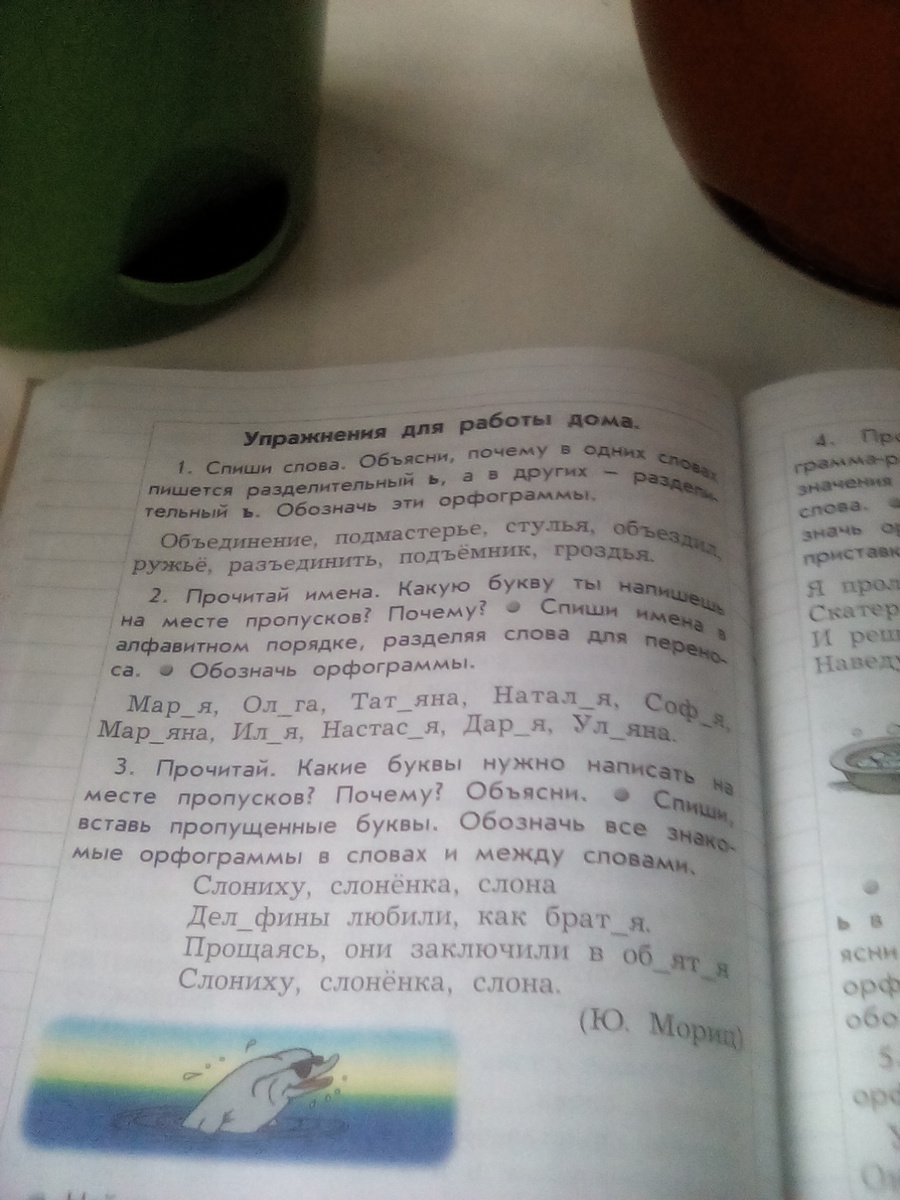 Упражнения для работы дома.
1. Спиши слова. Объясни, почему в одних словах
пишется разделительный ь, а в других — раздели-
тельный ъ. Обозначь эти орфограммы.
Объединение, подмастерье, стулья, объездил,
ружьё, разъединить, подъёмник, гроздья.
2. Прочитай имена. Какую букву ты напишешь
на месте пропусков? Почему? ● Спиши имена в
алфавитном порядке, разделяя слова для перено-
са. ● Обозначь орфограммы.
Мар_я, Ол_га, Тат_яна, Натал_я, Соф_я,
Мар_яна, Ил_я, Настас_я, Дар_я, Ул_яна.
3. Прочитай. Какие буквы нужно написать на
месте пропусков? Почему? Объясни. ● Спиши,
вставь пропущенные буквы. Обозначь все знако-
мые орфограммы в словах и между словами.
Слониху, слонёнка, слона
Дел_фины любили, как брат_я.
Прощаясь, они заключили в об_ят_я
Слониху, слонёнка, слона.
(Ю. Мориц)
4. Про
грамма-р
значения
слова.
значь ор
приставк
Я прол
Скатер
И реш
Наведу
●
ь в
ясни
орф
обо
5.
орф